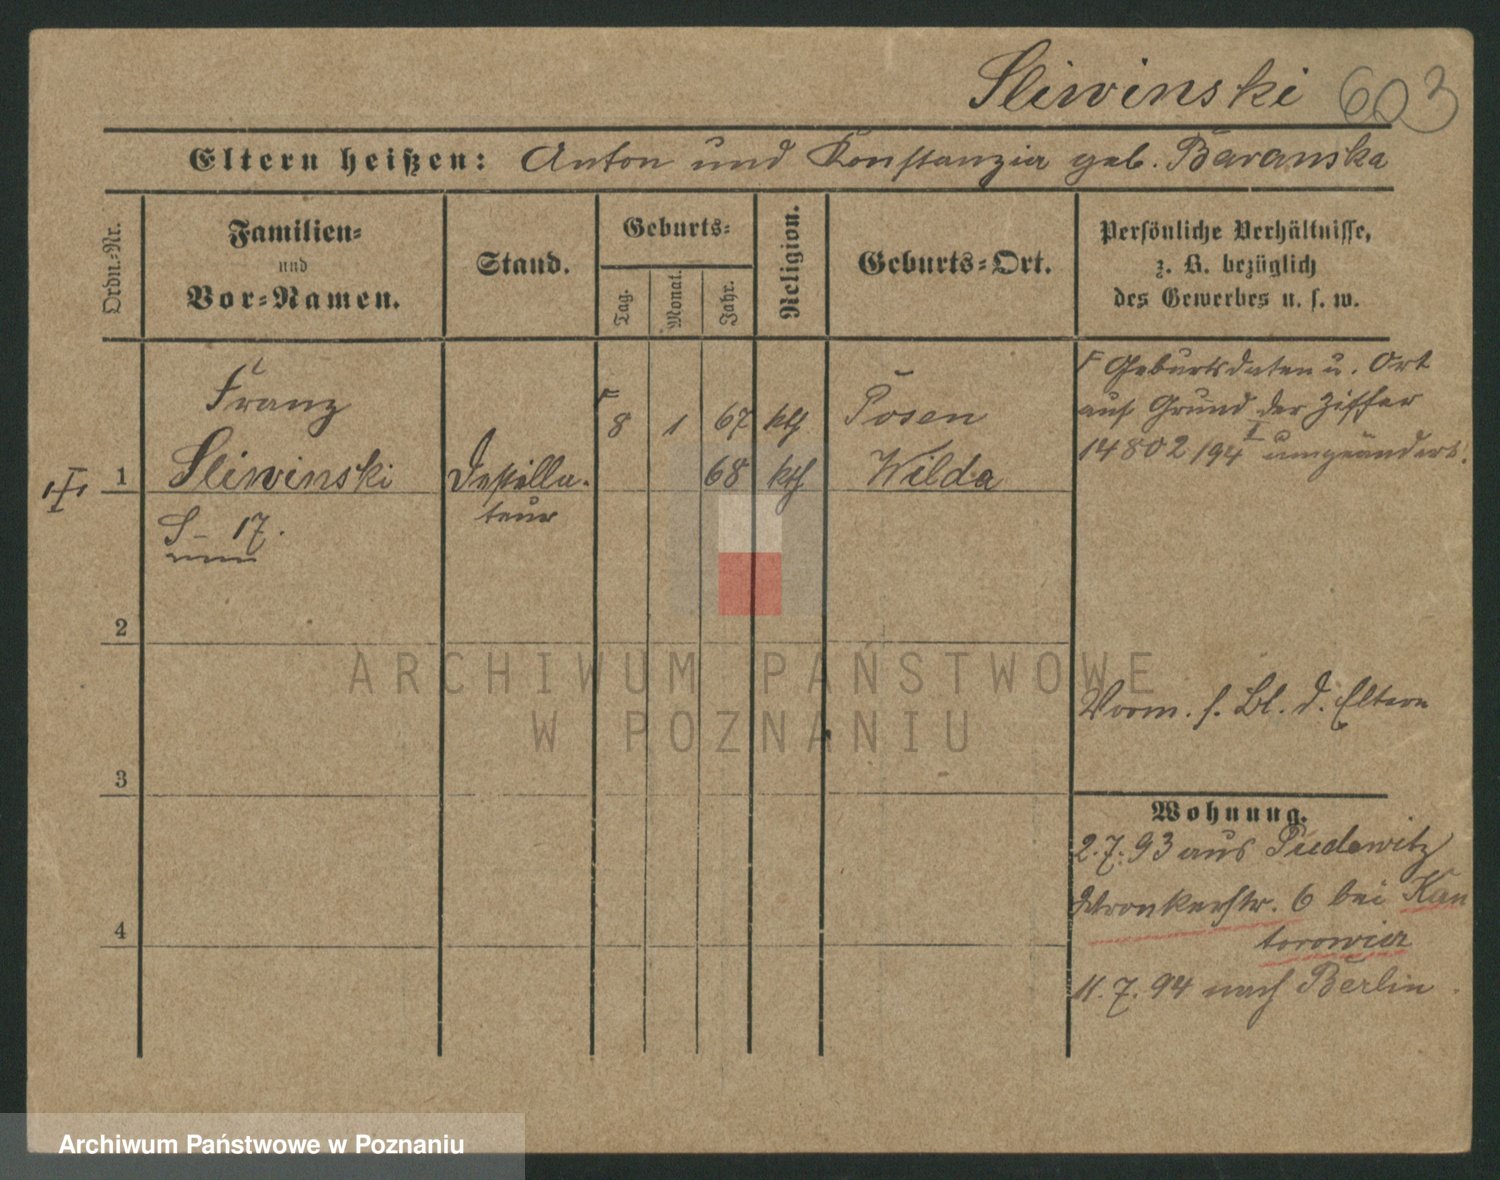 Sliwinski 603
Eltern heißen: Anton und Konstanzia geb. Baranska
Ordn.-Nr.
Familien-
und
Vor-Namen.
Stand.
Geburts-
Tag.
Monat.
Jahr.
Religion.
Geburts-Ort.
Persönliche Verhältnisse,
z. B. bezüglich
des Gewerbes u. s. w.
Franz
8 1 67 kth
Posen
1 Sliwinski
Destilla-
teur
68 kth
Wilda
S- 17.
F Geburtsdaten u. Ort
auf Grund der Ziffer
14802/94 I umgeändert.
2
Vorm. s. Bl. d. Eltern
3
Wohnung.
2.7.93 aus Pudewitz
Wronkerstr. 6 bei Kan
torowicz
4
11.7.94 nach Berlin.
ARCHIWUM PAŃSTWOWE
W POZNANIU
Archiwum Państwowe w Poznaniu